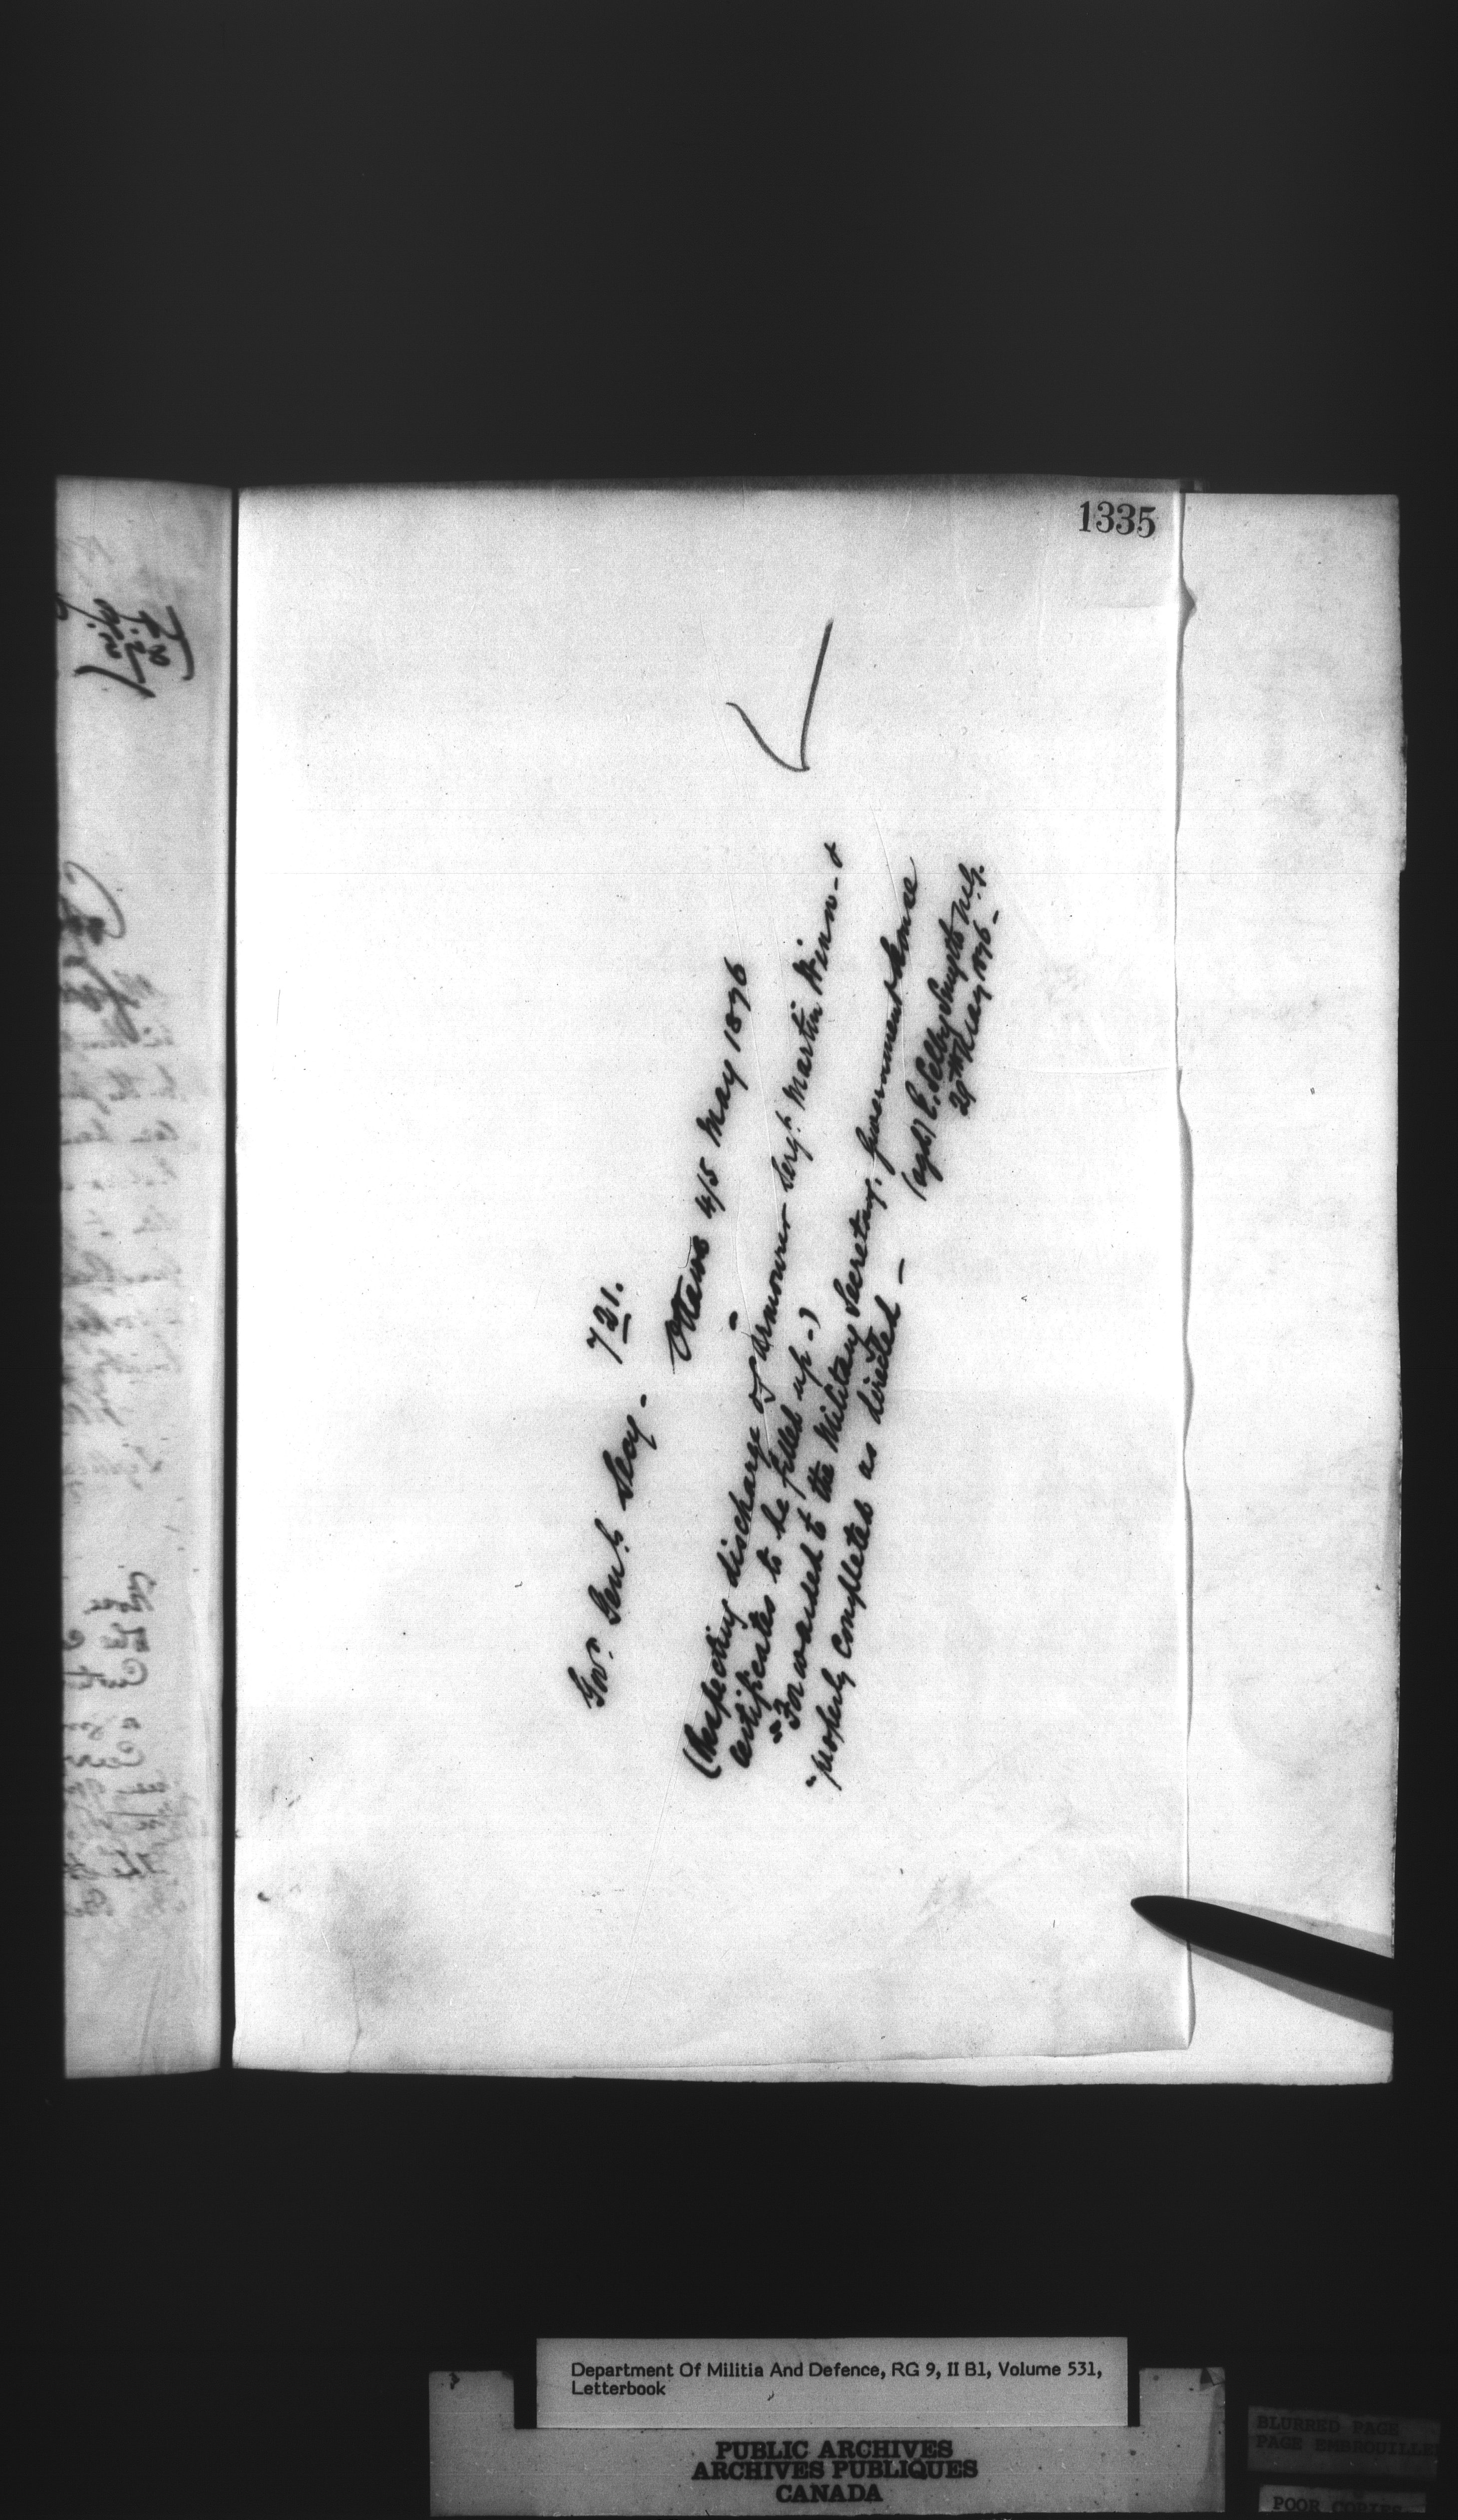 1335
Govr. Genl's Secy - 721.
Ottawa 4/5 May 1876
(Respecting discharge of Armourer Sergt. Martin &
certificates to be filled up -)
"Forwarded to the Military Secretary. Government House
"properly completed as directed -
(sgd) E. Selby Smyth M.G.
29th May 1876 -
Department Of Militia And Defence, RG 9, II B1, Volume 531,
Letterbook
PUBLIC ARCHIVES
ARCHIVES PUBLIQUES
CANADA
BLURRED PAGE
PAGE EMBROUILLE
POOR COPIES